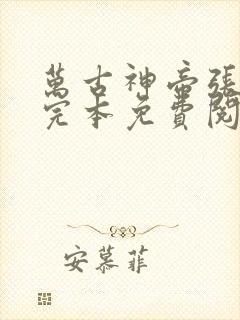 萬古神帝張
完本免費閱
安慕菲